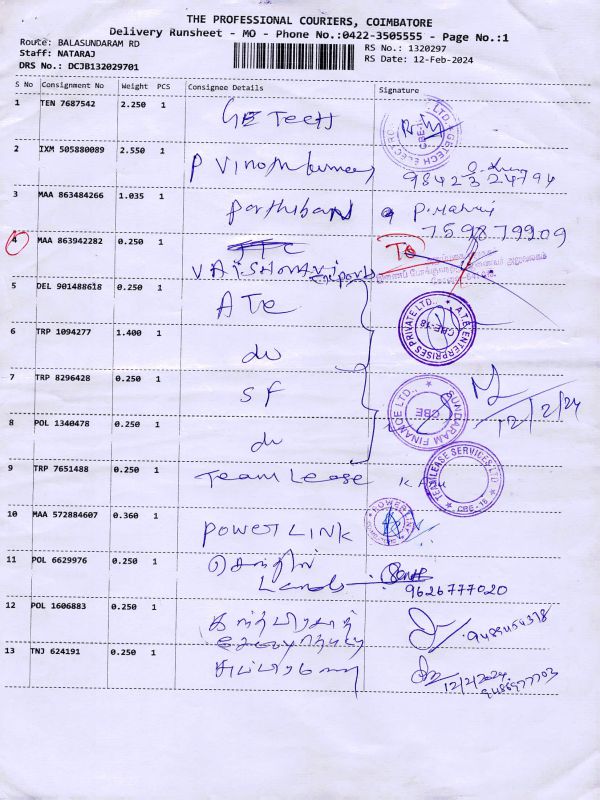 THE PROFESSIONAL COURIERS, COIMBATORE
Delivery Runsheet - MO - Phone No.:0422-3505555 - Page No.:1
Route: BALASUNDARAM RD
Staff: NATARAJ
DRS No.: DCJB132029701
RS No.: 1320297
RS Date: 12-Feb-2024
S No Consignment No Weight PCS Consignee Details Signature
1 TEN 7687542 2.250 1 GE Tech
2 IXM 505880089 2.550 1 P Vinothkumar
98423 24794
3 MAA 863484266 1.035 1 Parthiban
7598799
4 MAA 863942282 0.250 1
VAISHNAVI Exports
5 DEL 901488618 0.250 1 ATE A.T.E. ENTERPRISES PRIVATE LTD., CBE-18
6 TRP 1094277 1.400 1 do
7 TRP 8296428 0.250 1 SF
8 POL 1340478 0.250 1 do SUNDARAM FINANCE LTD., CBE 12/2/24
9 TRP 7651488 0.250 1 Team Lease TEAMLEASE SERVICES LTD CBE-18
10 MAA 572884607 0.360 1 POWER LINK
11 POL 6629976 0.250 1 செந்தில்
Lands 9626777020
12 POL 1606883 0.250 1
13 TNJ 624191 0.250 1
12/2/2024